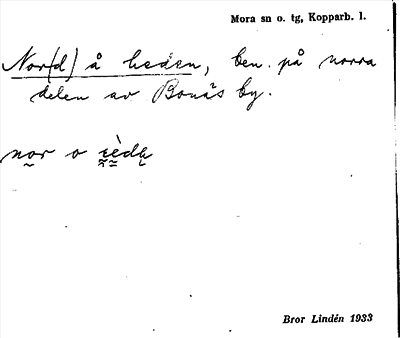 Mora sn o. tg, Kopparb. l.
Nor(d) å heden, ben. på norra
delen av Bonäs by.
nor o
Bror Lindén 1933